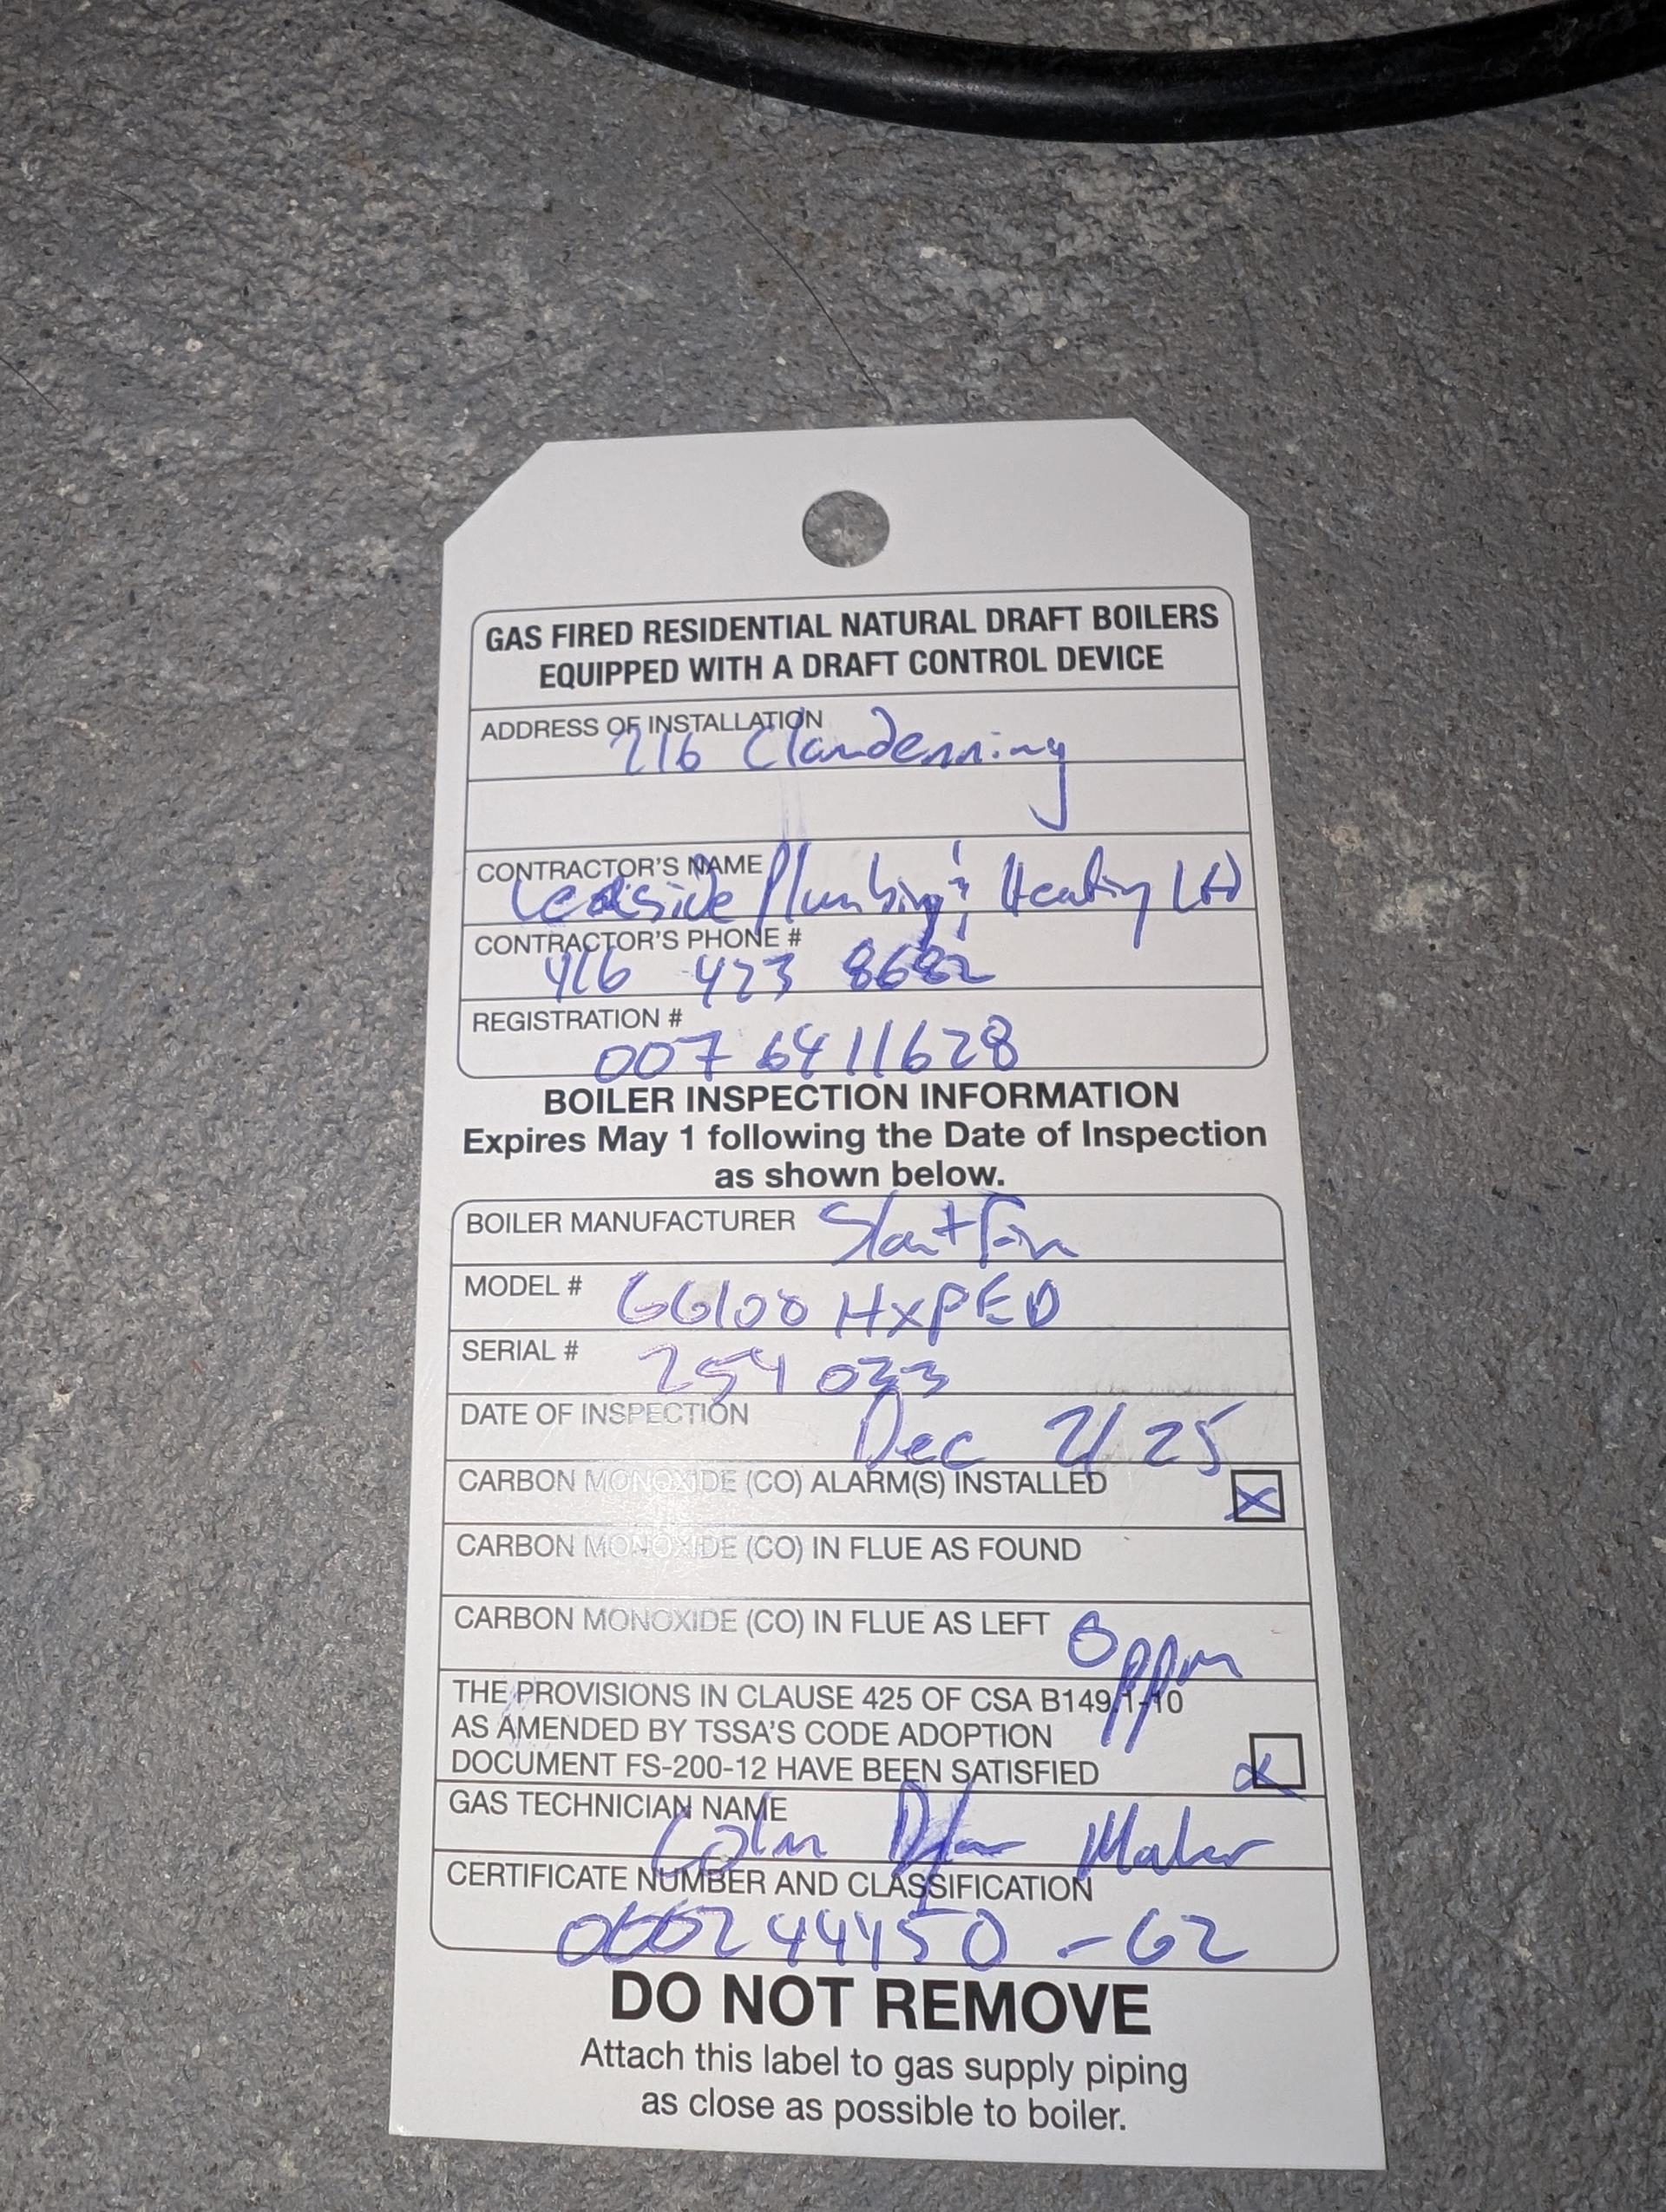 GAS FIRED RESIDENTIAL NATURAL DRAFT BOILERS
EQUIPPED WITH A DRAFT CONTROL DEVICE
ADDRESS OF INSTALLATION
216 Clandenning
CONTRACTOR'S NAME
Leaside Plumbing & Heating Ltd
CONTRACTOR'S PHONE #
416 423 8682
REGISTRATION #
007 6411628
BOILER INSPECTION INFORMATION
Expires May 1 following the Date of Inspection
as shown below.
BOILER MANUFACTURER Slant Fin
MODEL # GG100 HXPED
SERIAL # 254 033
DATE OF INSPECTION Dec 2/25
CARBON MONOXIDE (CO) ALARM(S) INSTALLED X
CARBON MONOXIDE (CO) IN FLUE AS FOUND
CARBON MONOXIDE (CO) IN FLUE AS LEFT ppm
THE PROVISIONS IN CLAUSE 425 OF CSA B149.1-10
AS AMENDED BY TSSA'S CODE ADOPTION
DOCUMENT FS-200-12 HAVE BEEN SATISFIED X
GAS TECHNICIAN NAME
CERTIFICATE NUMBER AND CLASSIFICATION
000244450 - G2
DO NOT REMOVE
Attach this label to gas supply piping
as close as possible to boiler.